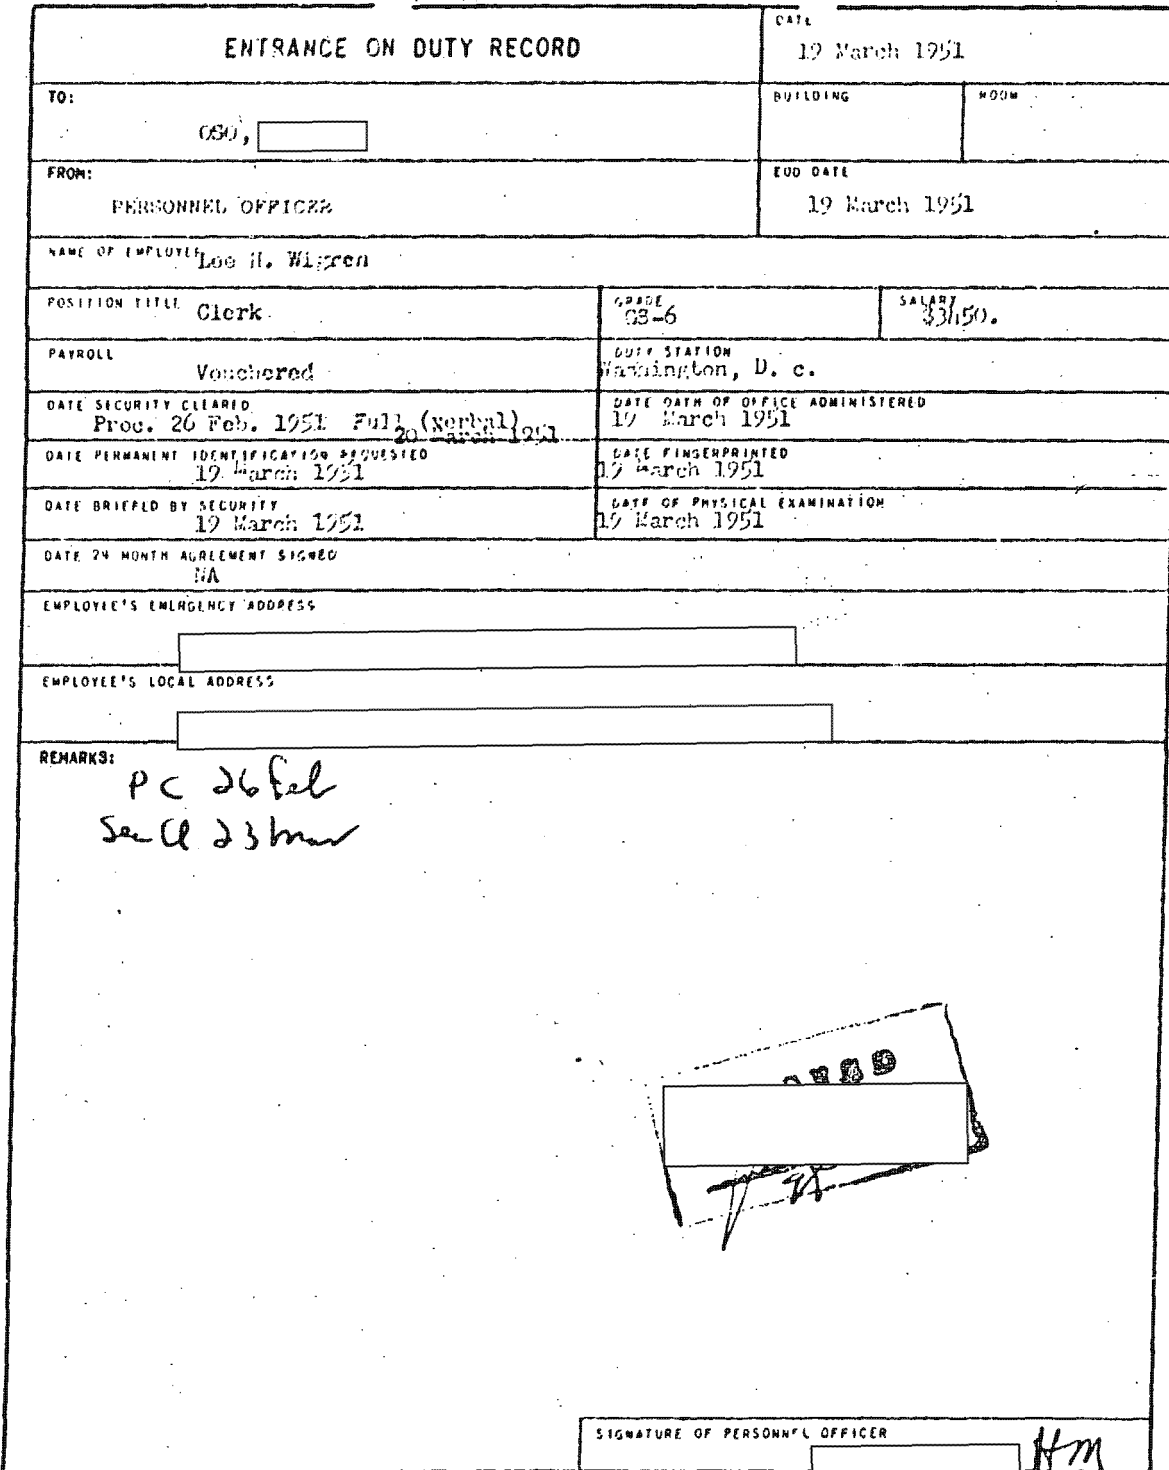 DATE
ENTRANCE ON DUTY RECORD
19 March 1951
TO:
BUILDING
ROOM
OSO,
FROM:
EOD DATE
PERSONNEL OFFICER
19 March 1951
NAME OF EMPLOYEE Lee H. Wigren
POSITION TITLE Clerk
GRADE
GS-6
SALARY
$3450.
PAYROLL
Vouchered
DUTY STATION
Washington, D. c.
DATE SECURITY CLEARED
Proc. 26 Feb. 1951 Full (verbal)
20 March 1951
DATE OATH OF OFFICE ADMINISTERED
19 March 1951
DATE PERMANENT IDENTIFICATION REQUESTED
19 March 1951
DATE FINGERPRINTED
19 March 1951
DATE BRIEFED BY SECURITY
19 March 1951
DATE OF PHYSICAL EXAMINATION
19 March 1951
DATE 24 MONTH AGREEMENT SIGNED
NA
EMPLOYEE'S EMERGENCY ADDRESS
EMPLOYEE'S LOCAL ADDRESS
REMARKS:
PC 26 Feb
Sec Cl 23 Mar
SIGNATURE OF PERSONNEL OFFICER
HM